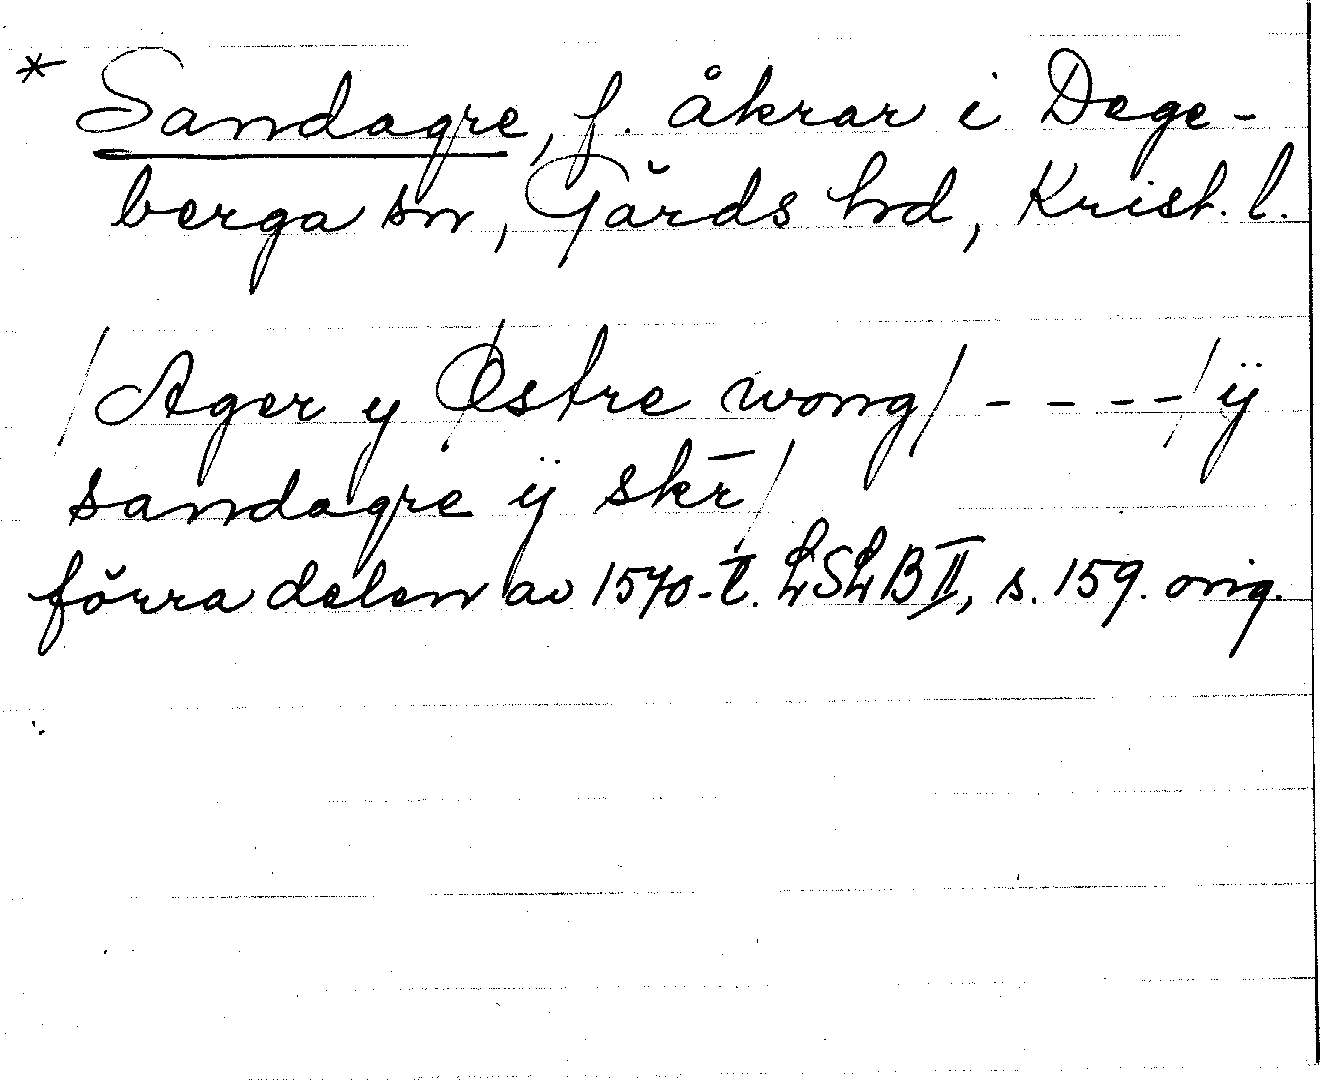 * Sandagre, f. åkrar i Dege-
berga sn, Gärds hd, Krist. l.
/Ager y Østre wong/ - - - - / ÿ
sandagre ÿ skr̄/
förra delen av 1570-t. LSLB II, s. 159. orig.